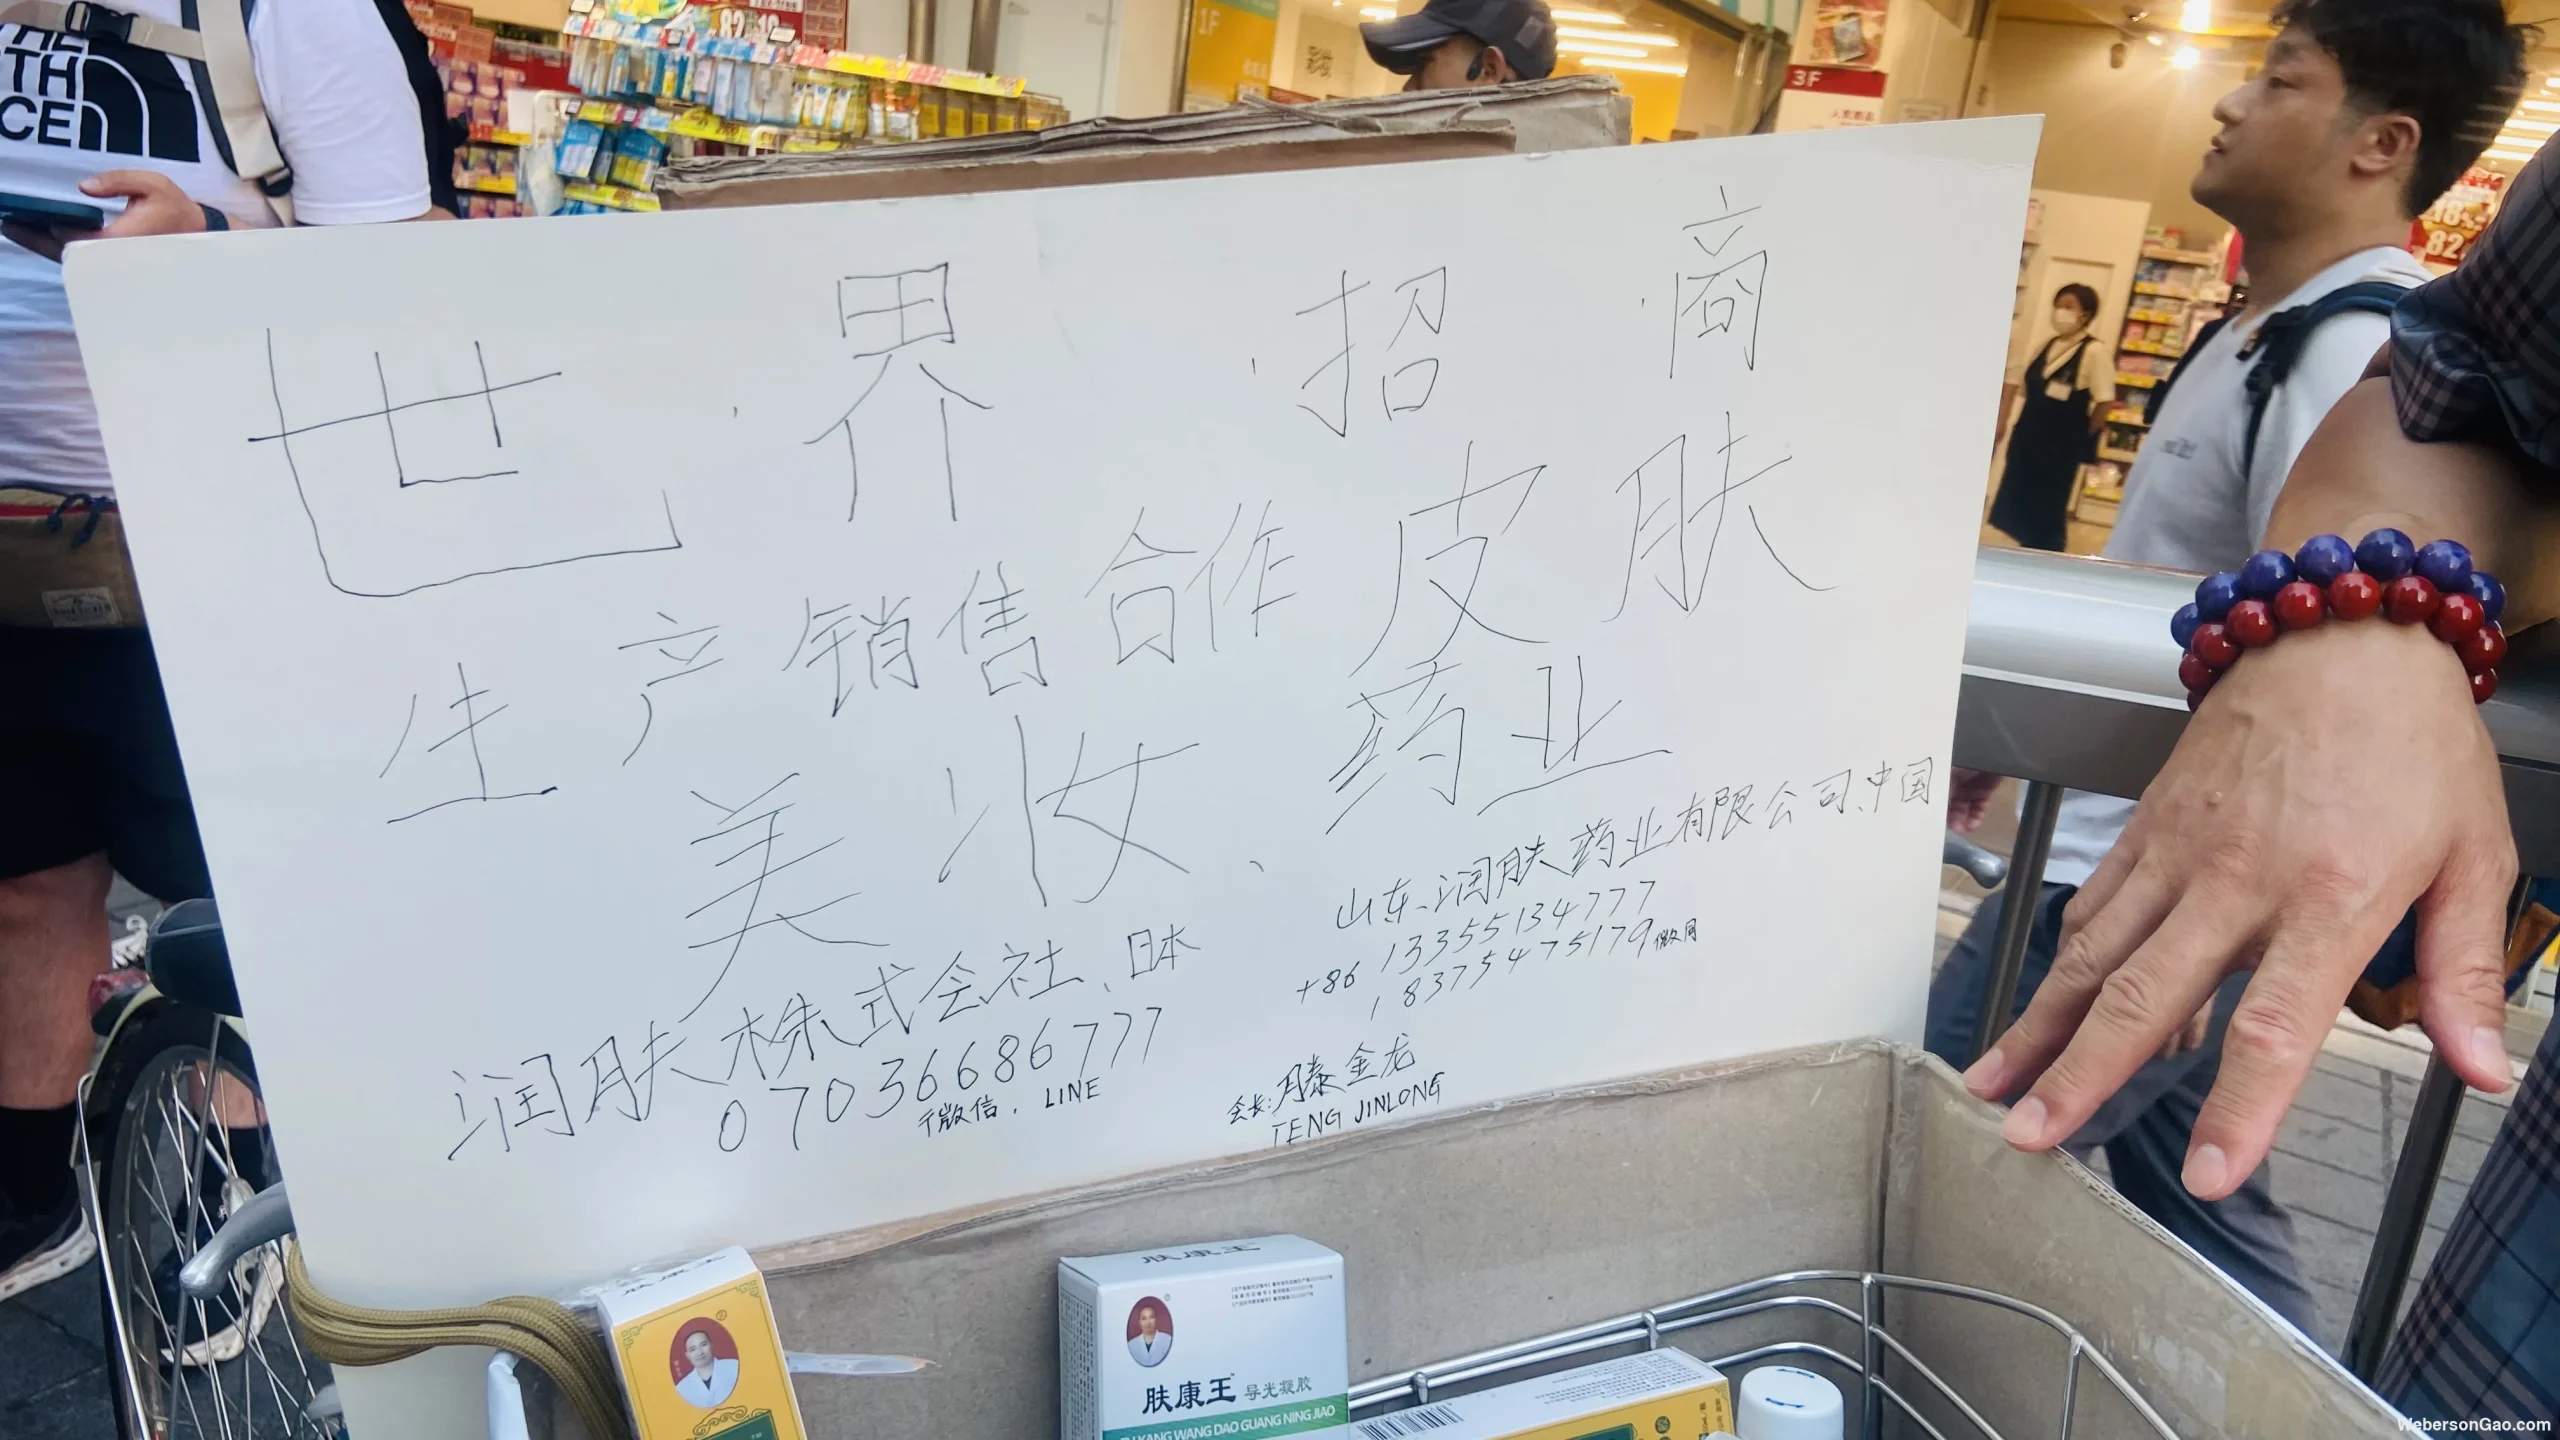 THE
NORTH
FACE
82
1F
3F
18%
82
世界招商
生产销售合作皮肤
美妆、药业
润肤株式会社、日本
07036686777
微信. LINE
山东润肤药业有限公司、中国
+86 13355134777
18375475179微同
会长:滕金龙
TENG JINLONG
肤康王
肤康王
肤康王 导光凝胶
FU KANG WANG DAO GUANG NING JIAO
WebersonGao.com